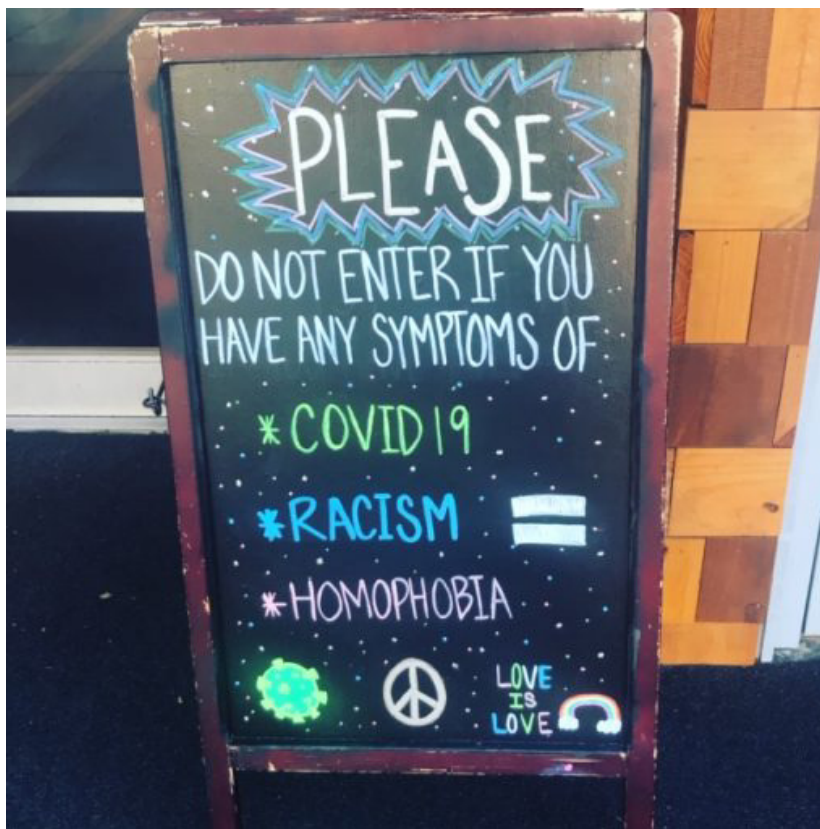 PLEASE
DO NOT ENTER IF YOU
HAVE ANY SYMPTOMS OF
*COVID19
*RACISM
*HOMOPHOBIA
LOVE
IS
LOVE